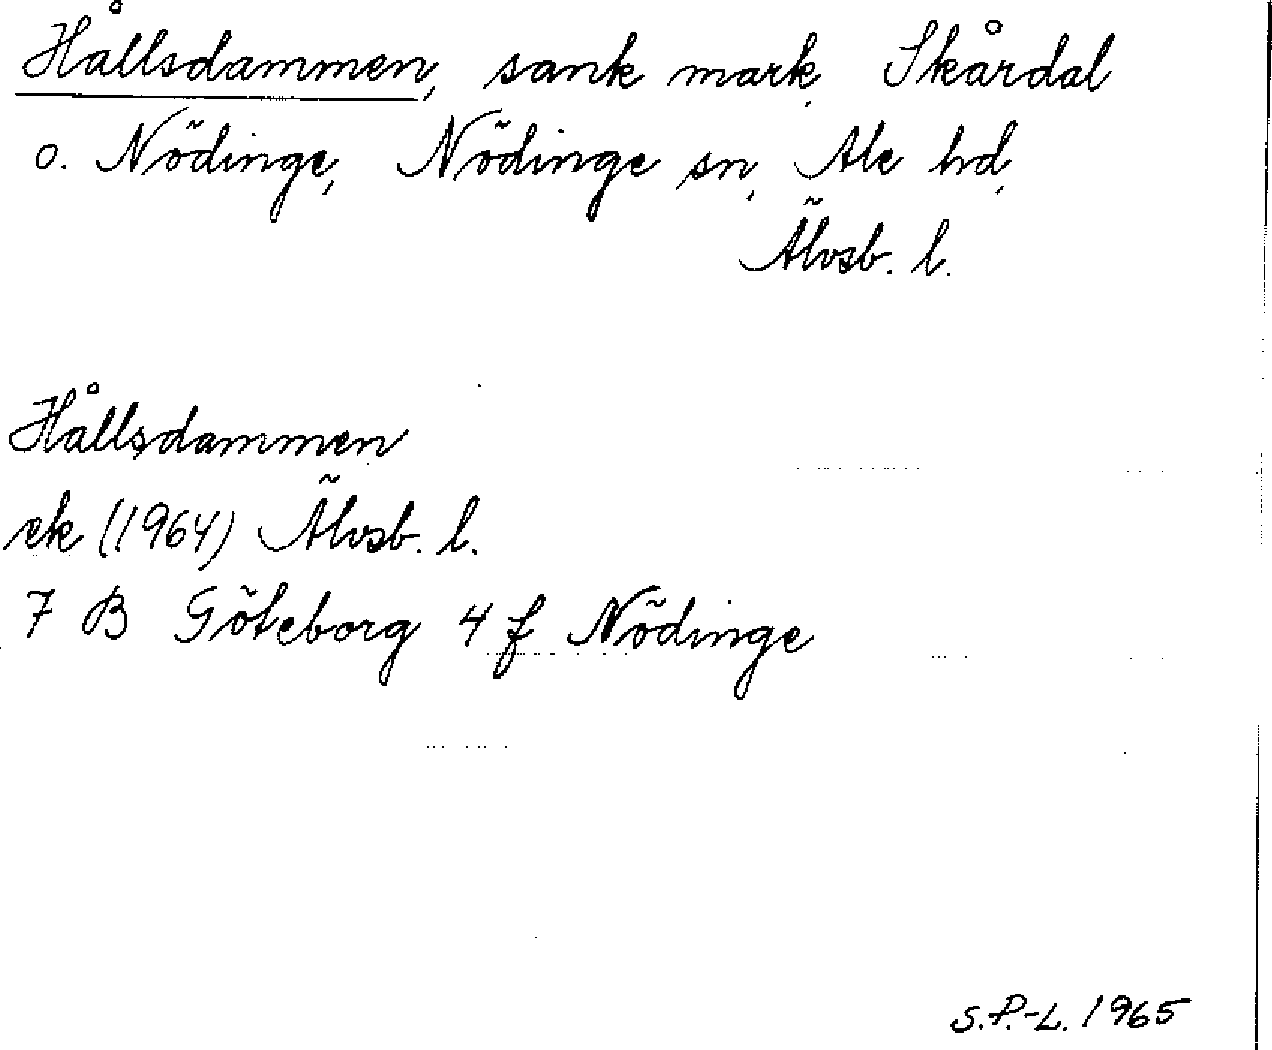 Hållsdammen, sank mark, Skårdal
o. Nödinge, Nödinge sn, Ale hd,
Älvsb. l.
Hållsdammen
ek (1964) Älvsb. l.
7 B Göteborg 4 f Nödinge
S.P.-L. 1965